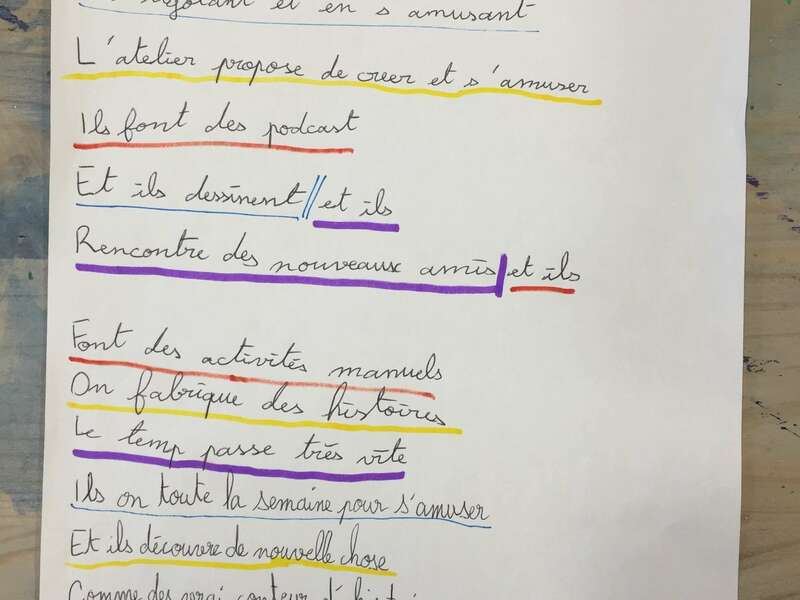 et en s'amusant
L'atelier propose de creer et s'amuser
Ils font des podcast
Et ils dessinent // et ils
Rencontre des nouveaux amis | et ils
Font des activités manuels
On fabrique des histoires
Le temp passe très vite
Ils on toute la semaine pour s'amuser
Et ils découvre de nouvelle chose
Comme des vrai conteur d'